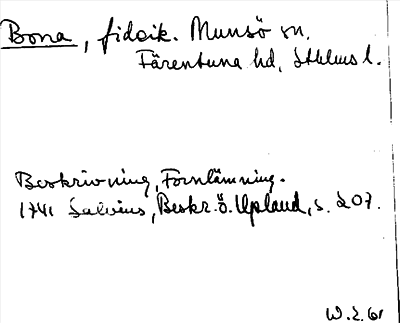 Bona, fideik. Munsö sn.
Färentuna hd, Sthlms l.
Beskrivning, Fornlämning.
1741 Salvius, Beskr. ö. Upland, s. 207.
W.E. 61